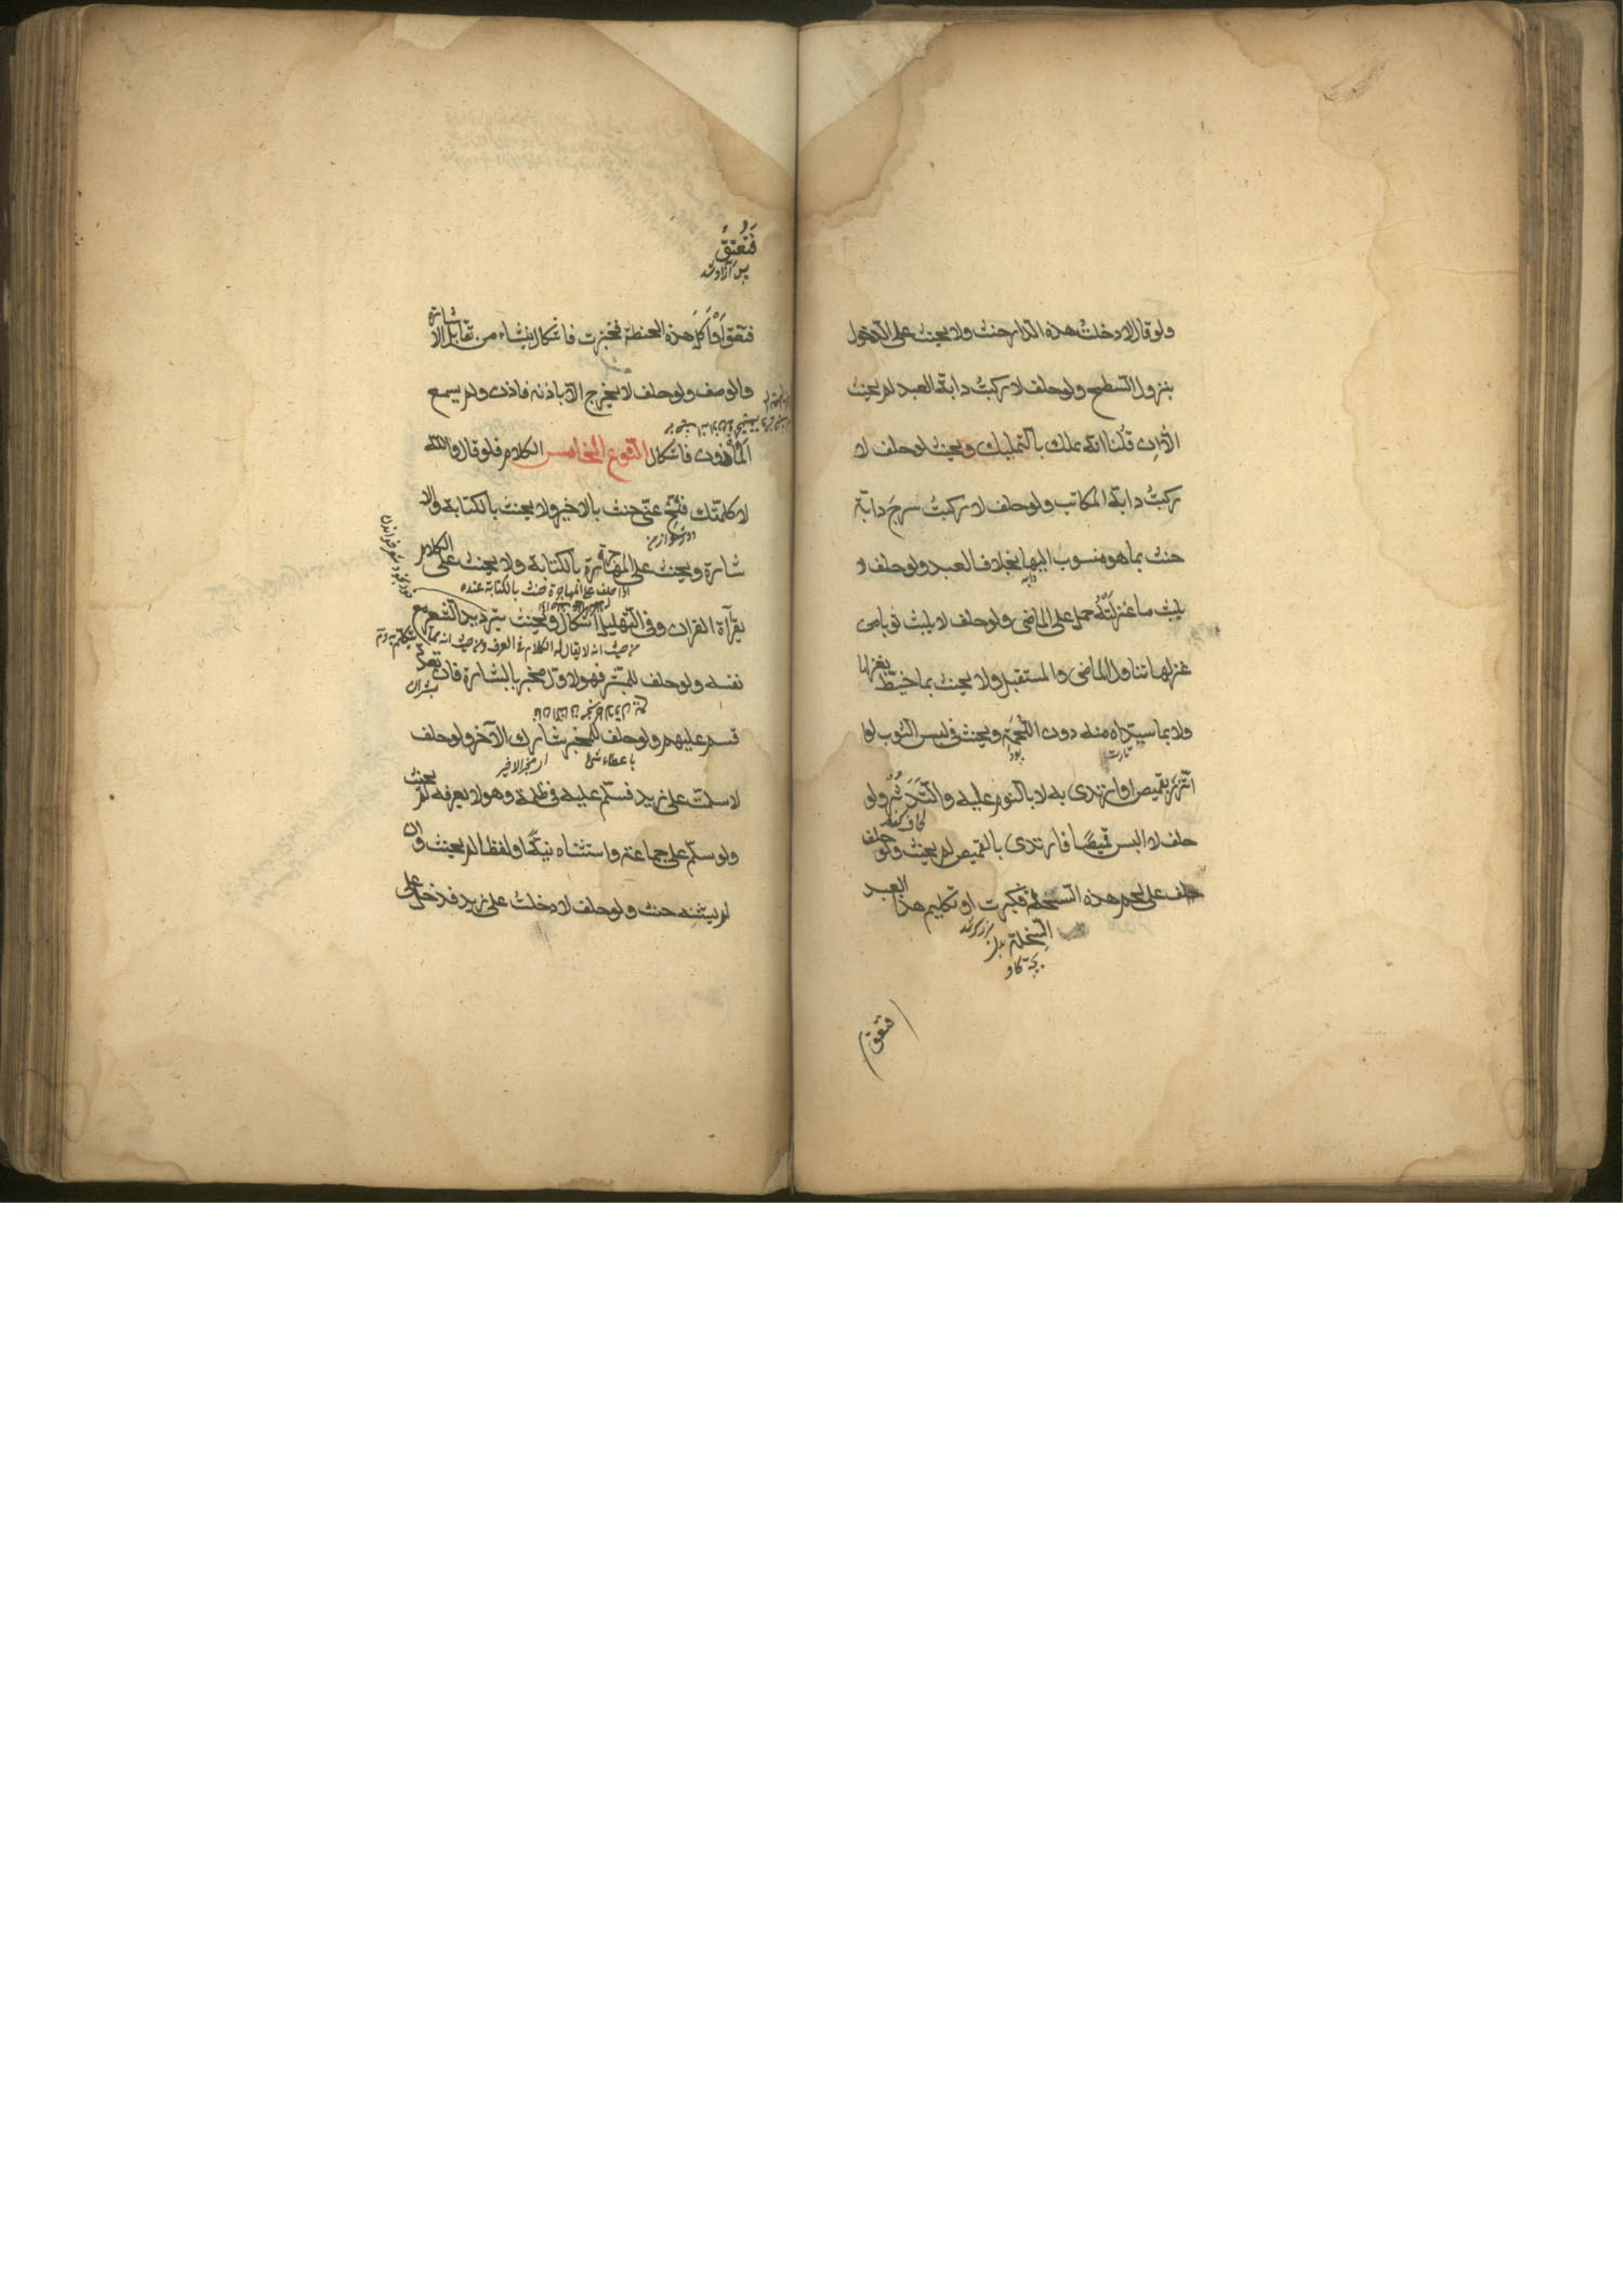 ولو قال لا دخلتُ هذه الدار حنث ولا يحنث على الدخول
بنزول السطح ولو حلف لا ركبتُ دابة العبد لم يحنث
الا ان قُلنا انه يملك بالتمليك ويحنث لو حلف لا
ركبتُ دابة المكاتب ولو حلف لا ركبتُ سرجَ دابة
حنث بما هو منسوب اليها بخلاف العبد ولو حلف لا
دابه
يلبث ما غزلَتْهُ حمل على الماضي ولو حلف لا يلبث ثوبا من
غزلها تناول الماضي والمستقبل ولا يحنث بما خيّط بغزلها
ولا بما سداه منه دون اللُحمَة ويحنث في لبس الثوب لو
تارت پود
اتّزر بقميص او ارتدى به لا بالنوم عليه والتَدَثُّرُ ولو
حلف لا البس قميصًا فارتدى بالقميص لم يحنث ولو حلف
حلف على لحم هذه السخلة فكبرت او تكليم هذا العبد
السخلة
بچه گاو
فعتق
فَعُتِقُ
پس آزاد شد
فعتق او أَكَلَ هذه الحنطة فخبزت فاشكال ينشاء من تقابل الاشارة
والوصف ولو حلف لا يخرج الا باذنه فاذن ولم يسمع
المأذون فاشكال النوع الخامس الكلام فلو قال والله
لا كلمتك فتنحّ عنّي حنث بالاخير ولا يحنث بالكتابة والا
دور شو از من
شارة ويحنث على المهاجرة بالكتابة ولا يحنث على الكلام
اذا حلف على المهاجرة حنث بالكتابة عنده
بقرآة القران وفي التهليل اشكال ويحنث بترديد الشعر مع
من حيث انه لا يقال له الكلام في العرف ومن حيث انه
نفسه ولو حلف للمبشر فهو لاوّل مخبر بالبشارة فان تعدّد
قسم عليهم ولو حلف للمخبر شارك الآخر ولو حلف
المخبر الاخير
لا سلمت على زيد فسلّم عليه في ظلمة وهو لا يعرفه لم يحنث
ولو سلّم على جماعة واستثناه نيّةً او لفظا لم يحنث وان
لم يستثنه حنث ولو حلف لا دخلت على زيد فدخل على